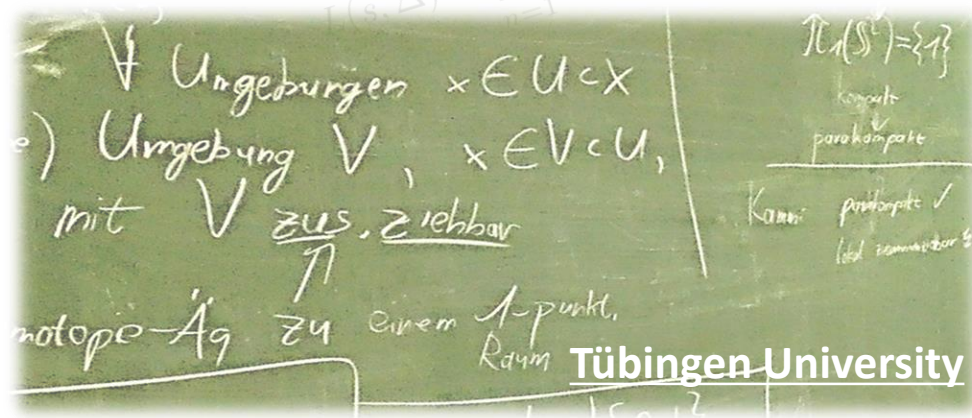 ∀ Umgebungen x ∈ U ⊂ X
) Umgebung V, x ∈ V ⊂ U,
mit V zus. ziehbar
⇑
motope-Äq zu einem 1-punkt.
Raum
π₁(S²)={1}
kompakt
↓
parakompakt
Kamm: parakompakt ✓
lokal
Tübingen University